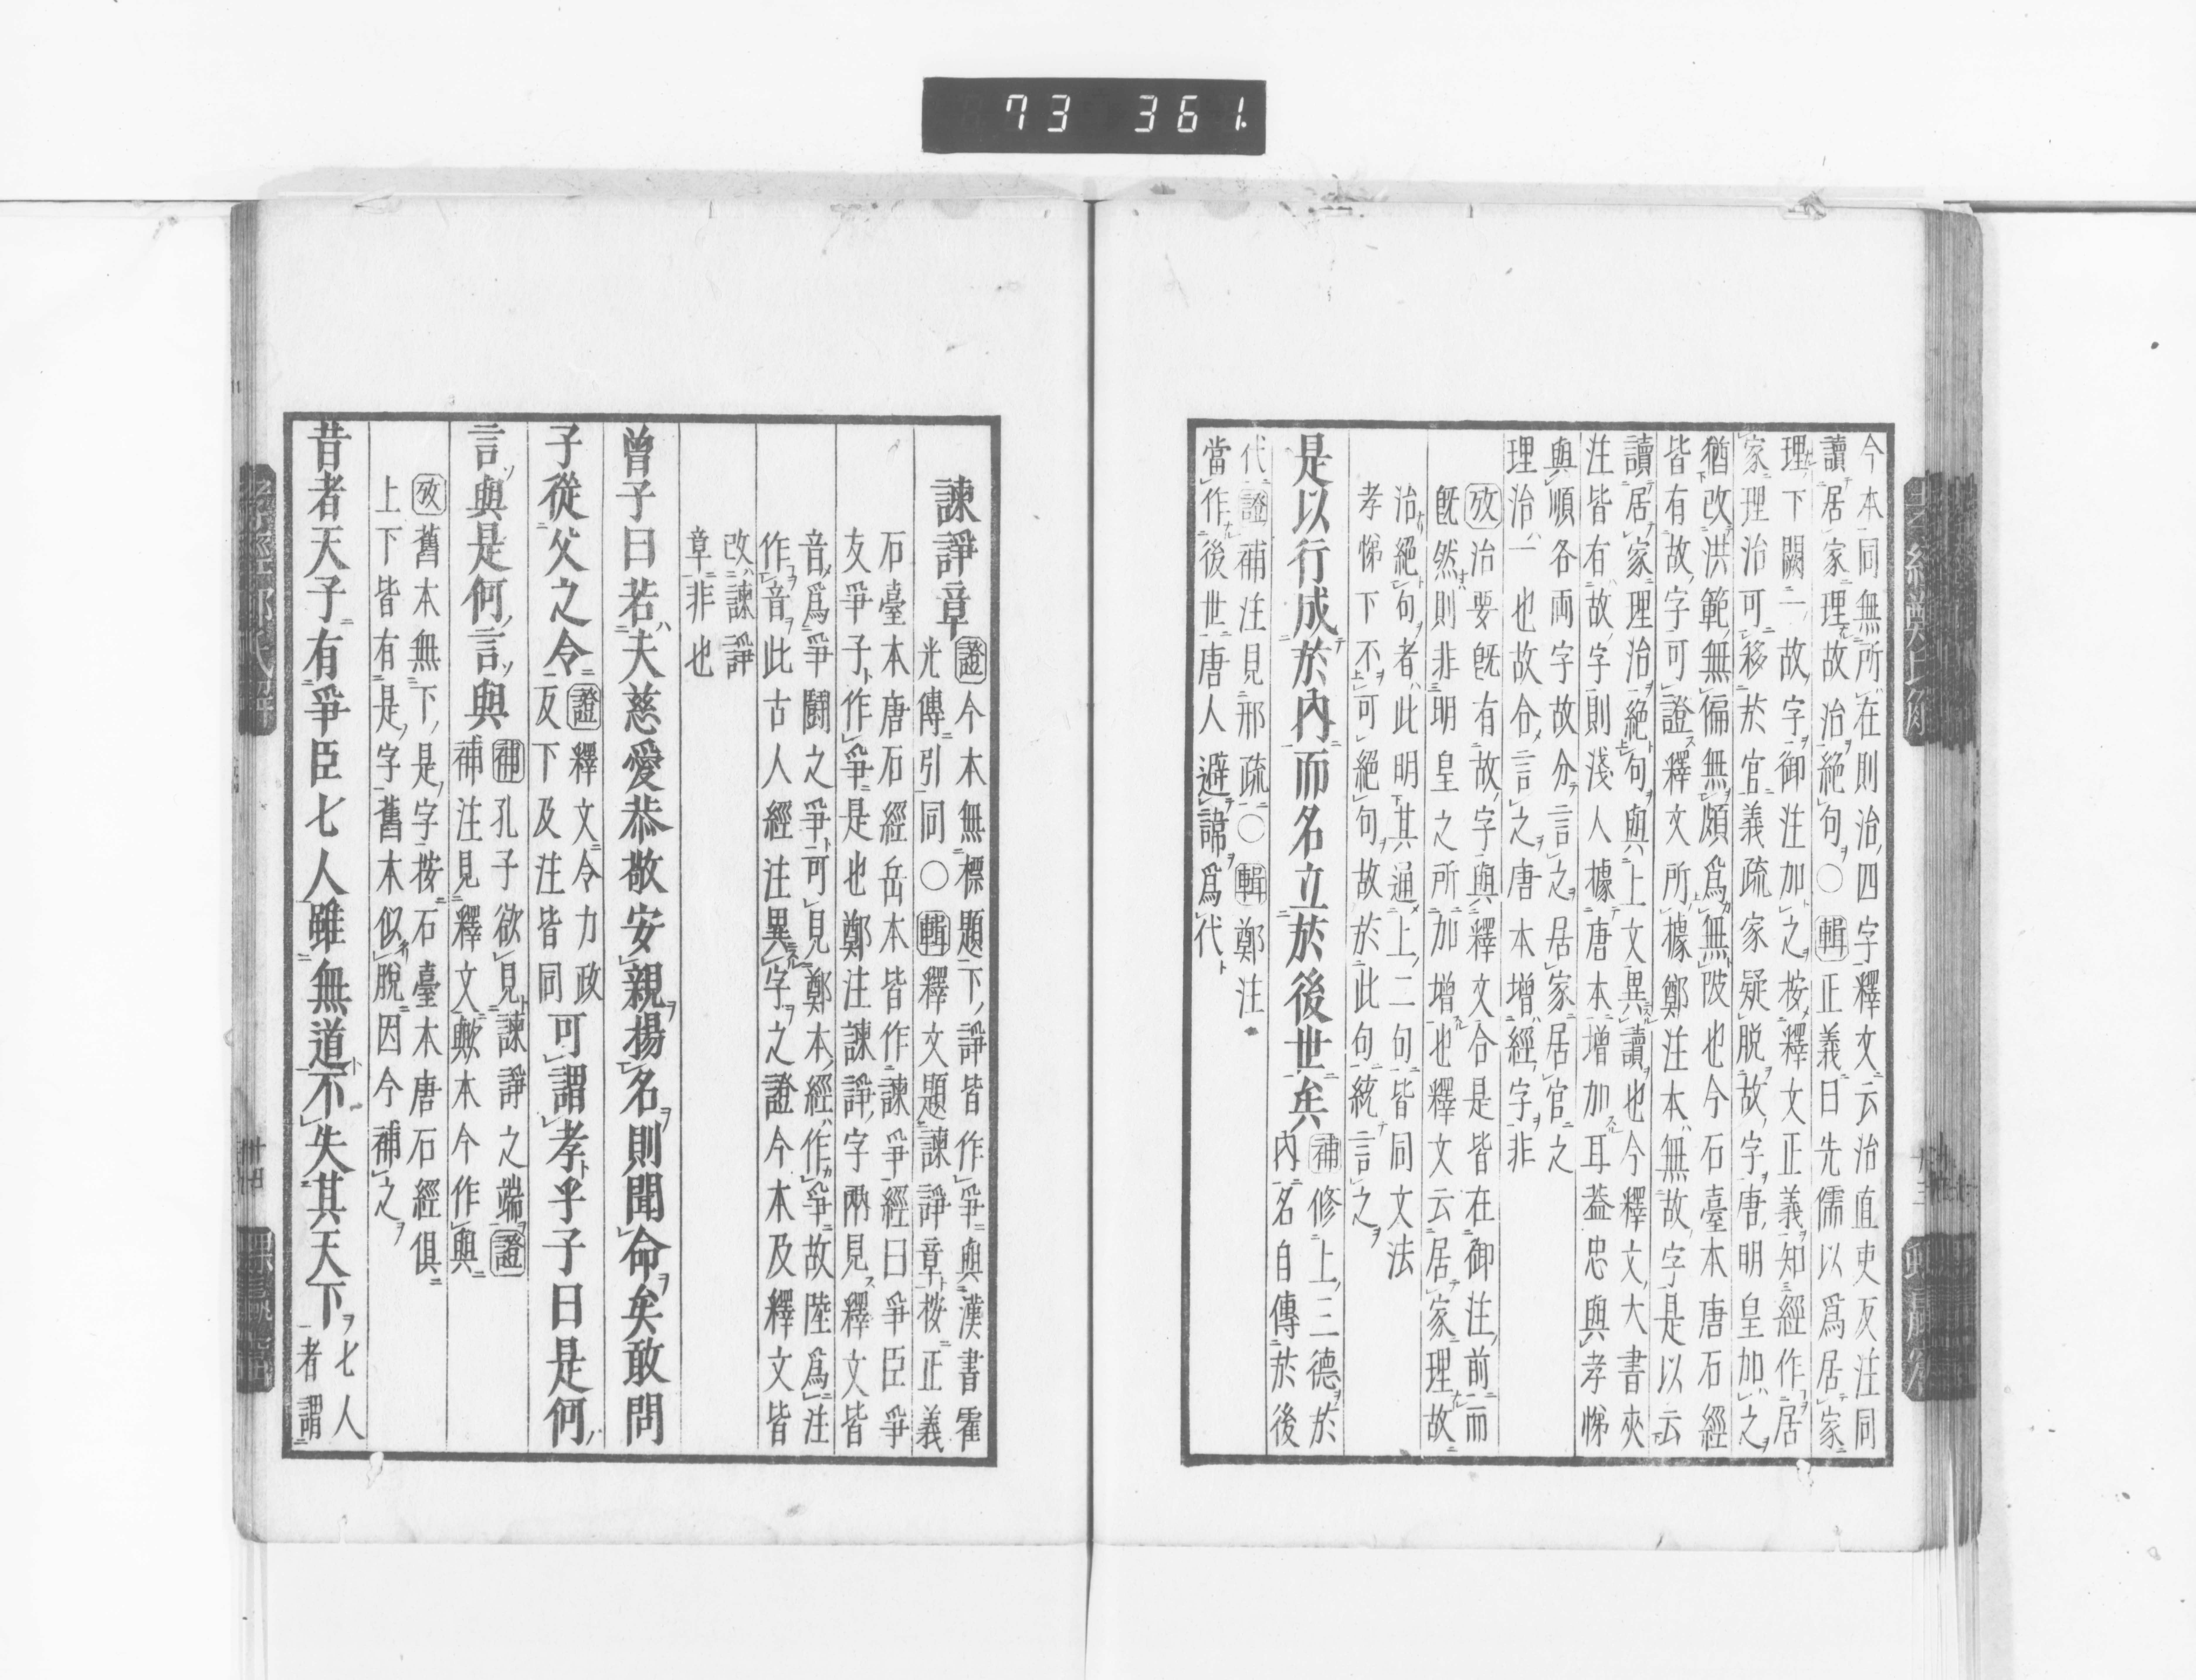 73 361
今本同無所在則治四字釋文云治直吏反注同
讀居家理故治絕句〇輯正義曰先儒以爲居家
理下闕一故字御注加之按釋文正義知經作居
家理治可移於官義疏家疑脫故字唐明皇加之
猶改洪範無偏無頗爲無陂也今石臺本唐石經
皆有故字可證釋文所據鄭注本無故字是以云
讀居家理治絕句與上文異讀也今釋文大書夾
注皆有故字則淺人據唐本增加耳葢忠與孝悌
與順各兩字故分言之居家居官之
理治一也故合言之唐本增經字非
攷治要旣有故字與釋文合是皆在御注前而
旣然則非明皇之所加增也釋文云居家理故
治絕句者此明其通上二句皆同文法
孝悌下不可絕句故於此句統言之
是以行成於內而名立於後世矣
補修上三德於
內名自傳於後
代證補注見邢疏〇輯鄭注
當作後世唐人避諱爲代
諫諍章
證今本無標題下諍皆作爭與漢書霍
光傳引同〇輯釋文題諫諍章按正義
石臺本唐石經岳本皆作諫爭經曰爭臣爭
友爭子作爭是也鄭注諫諍字兩見釋文皆
音爲爭鬪之爭可見鄭本經作爭故陸爲注
作音此古人經注異字之證今本及釋文皆
改諫諍
章非也
曾子曰若夫慈愛恭敬安親揚名則聞命矣敢問
子從父之令
證釋文令力政
反下及注皆同
可謂孝乎子曰是何
言與是何言與
補孔子欲見諫諍之端證
補注見釋文歟本今作與
攷舊本無下是字按石臺本唐石經俱
上下皆有是字舊本似脫因今補之
昔者天子有爭臣七人雖無道不失其天下
七人
者謂